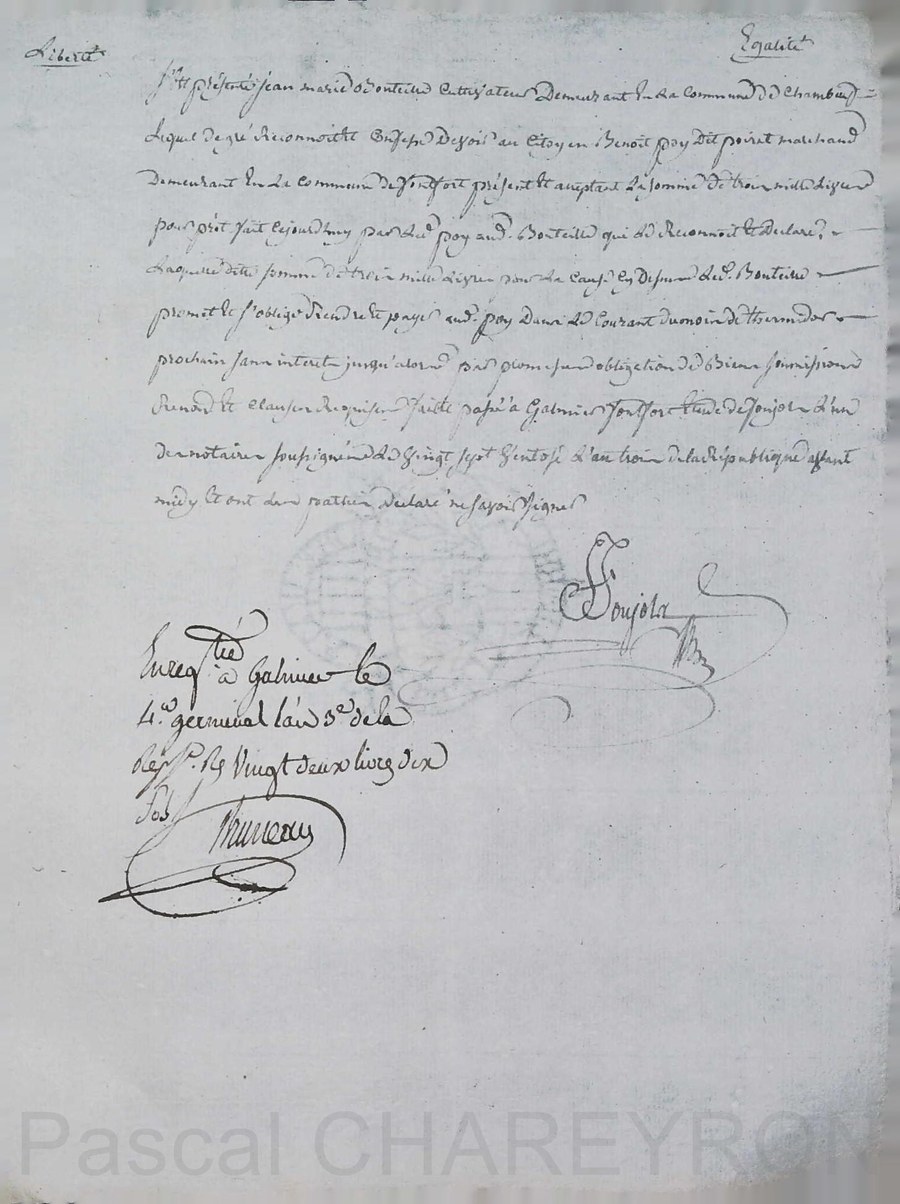 Liberté
Egalité
S'est présenté jean marie Bonteille Cultivateur Demeurant En La Commune de Chambeuf
Lequel de gré Reconnoit Et Confesse Devoir au Citoyen Benoit poy dit poirat marchand
Demeurant En La Commune de fontfort présent Et acceptant La somme de trois mille Livres
pour prêt fait Cejourdhuy par Led. poy aud. Bonteille qui Le Reconnoit Et Declare,
Laquelle ditte somme de trois mille Livres pour La Cause Cy Dessus Led. Bonteille
promet Et s'oblige Rendre Et payer aud. poy Dans Le Courant du mois de thermidor
prochain sans interet jusqu'alors par promesses obligation de Biens soumissions
Renon. Et Clauses Requises fait Et passé à Galmier fontfort Etude de Ponjols L'un
des notaires soussignés Le Vingt sept Ventose L'an trois de la République avant
midy Et ont Les parties déclaré ne savoir signer
Ponjols
Enregtré à Galmier le
4. germinal l'an 3e de la
Rep. R Vingt deux livres dix
sols
Bruneau
Pascal CHAREYRON